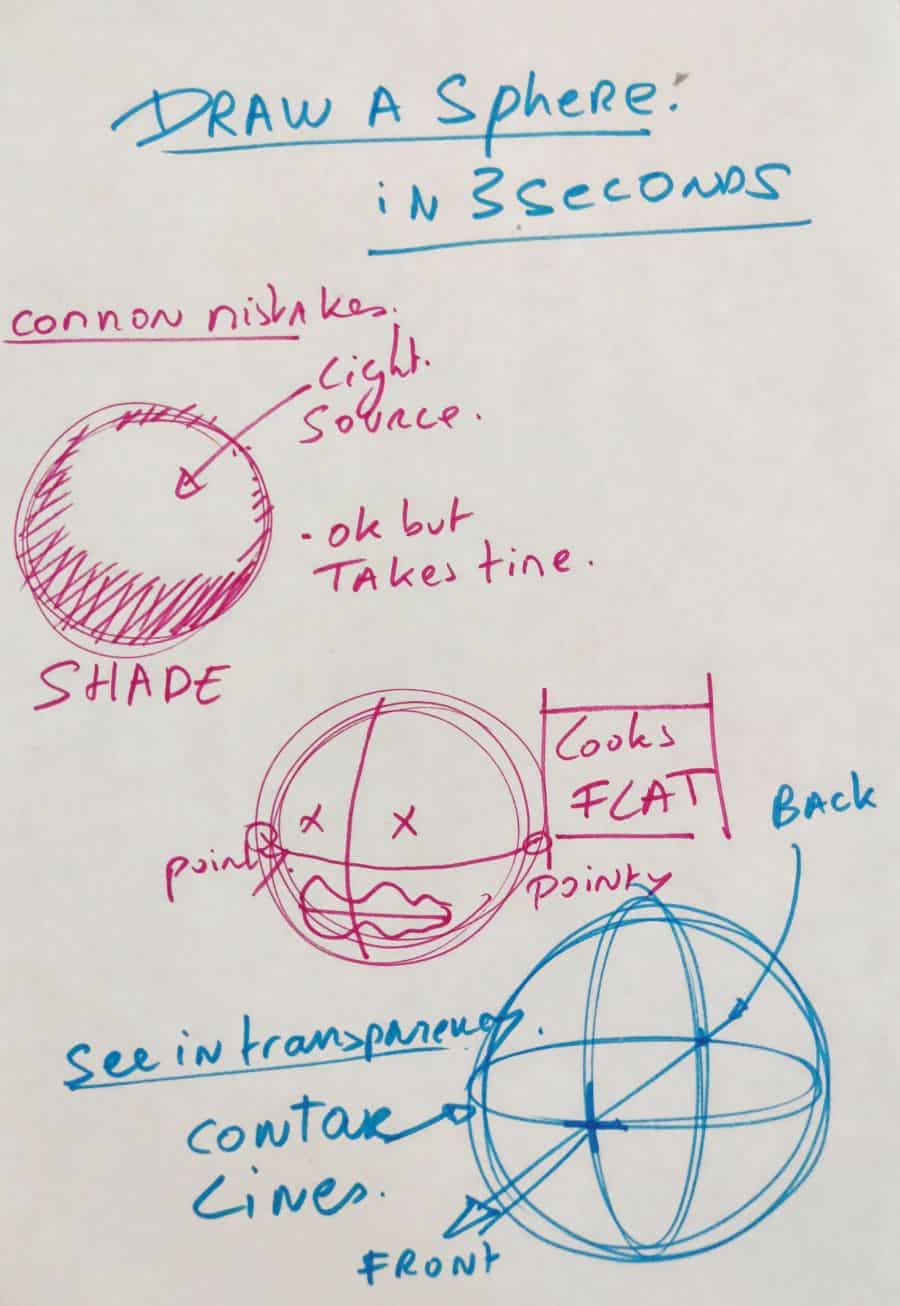 DRAW A Sphere:
in 3 Seconds
connon nistakes.
Light.
Source.
. ok but
TAkes tine.
SHADE
Looks
FLAT
BACK
pointy
pointy
See in transparency.
contour
Lines.
FRONT